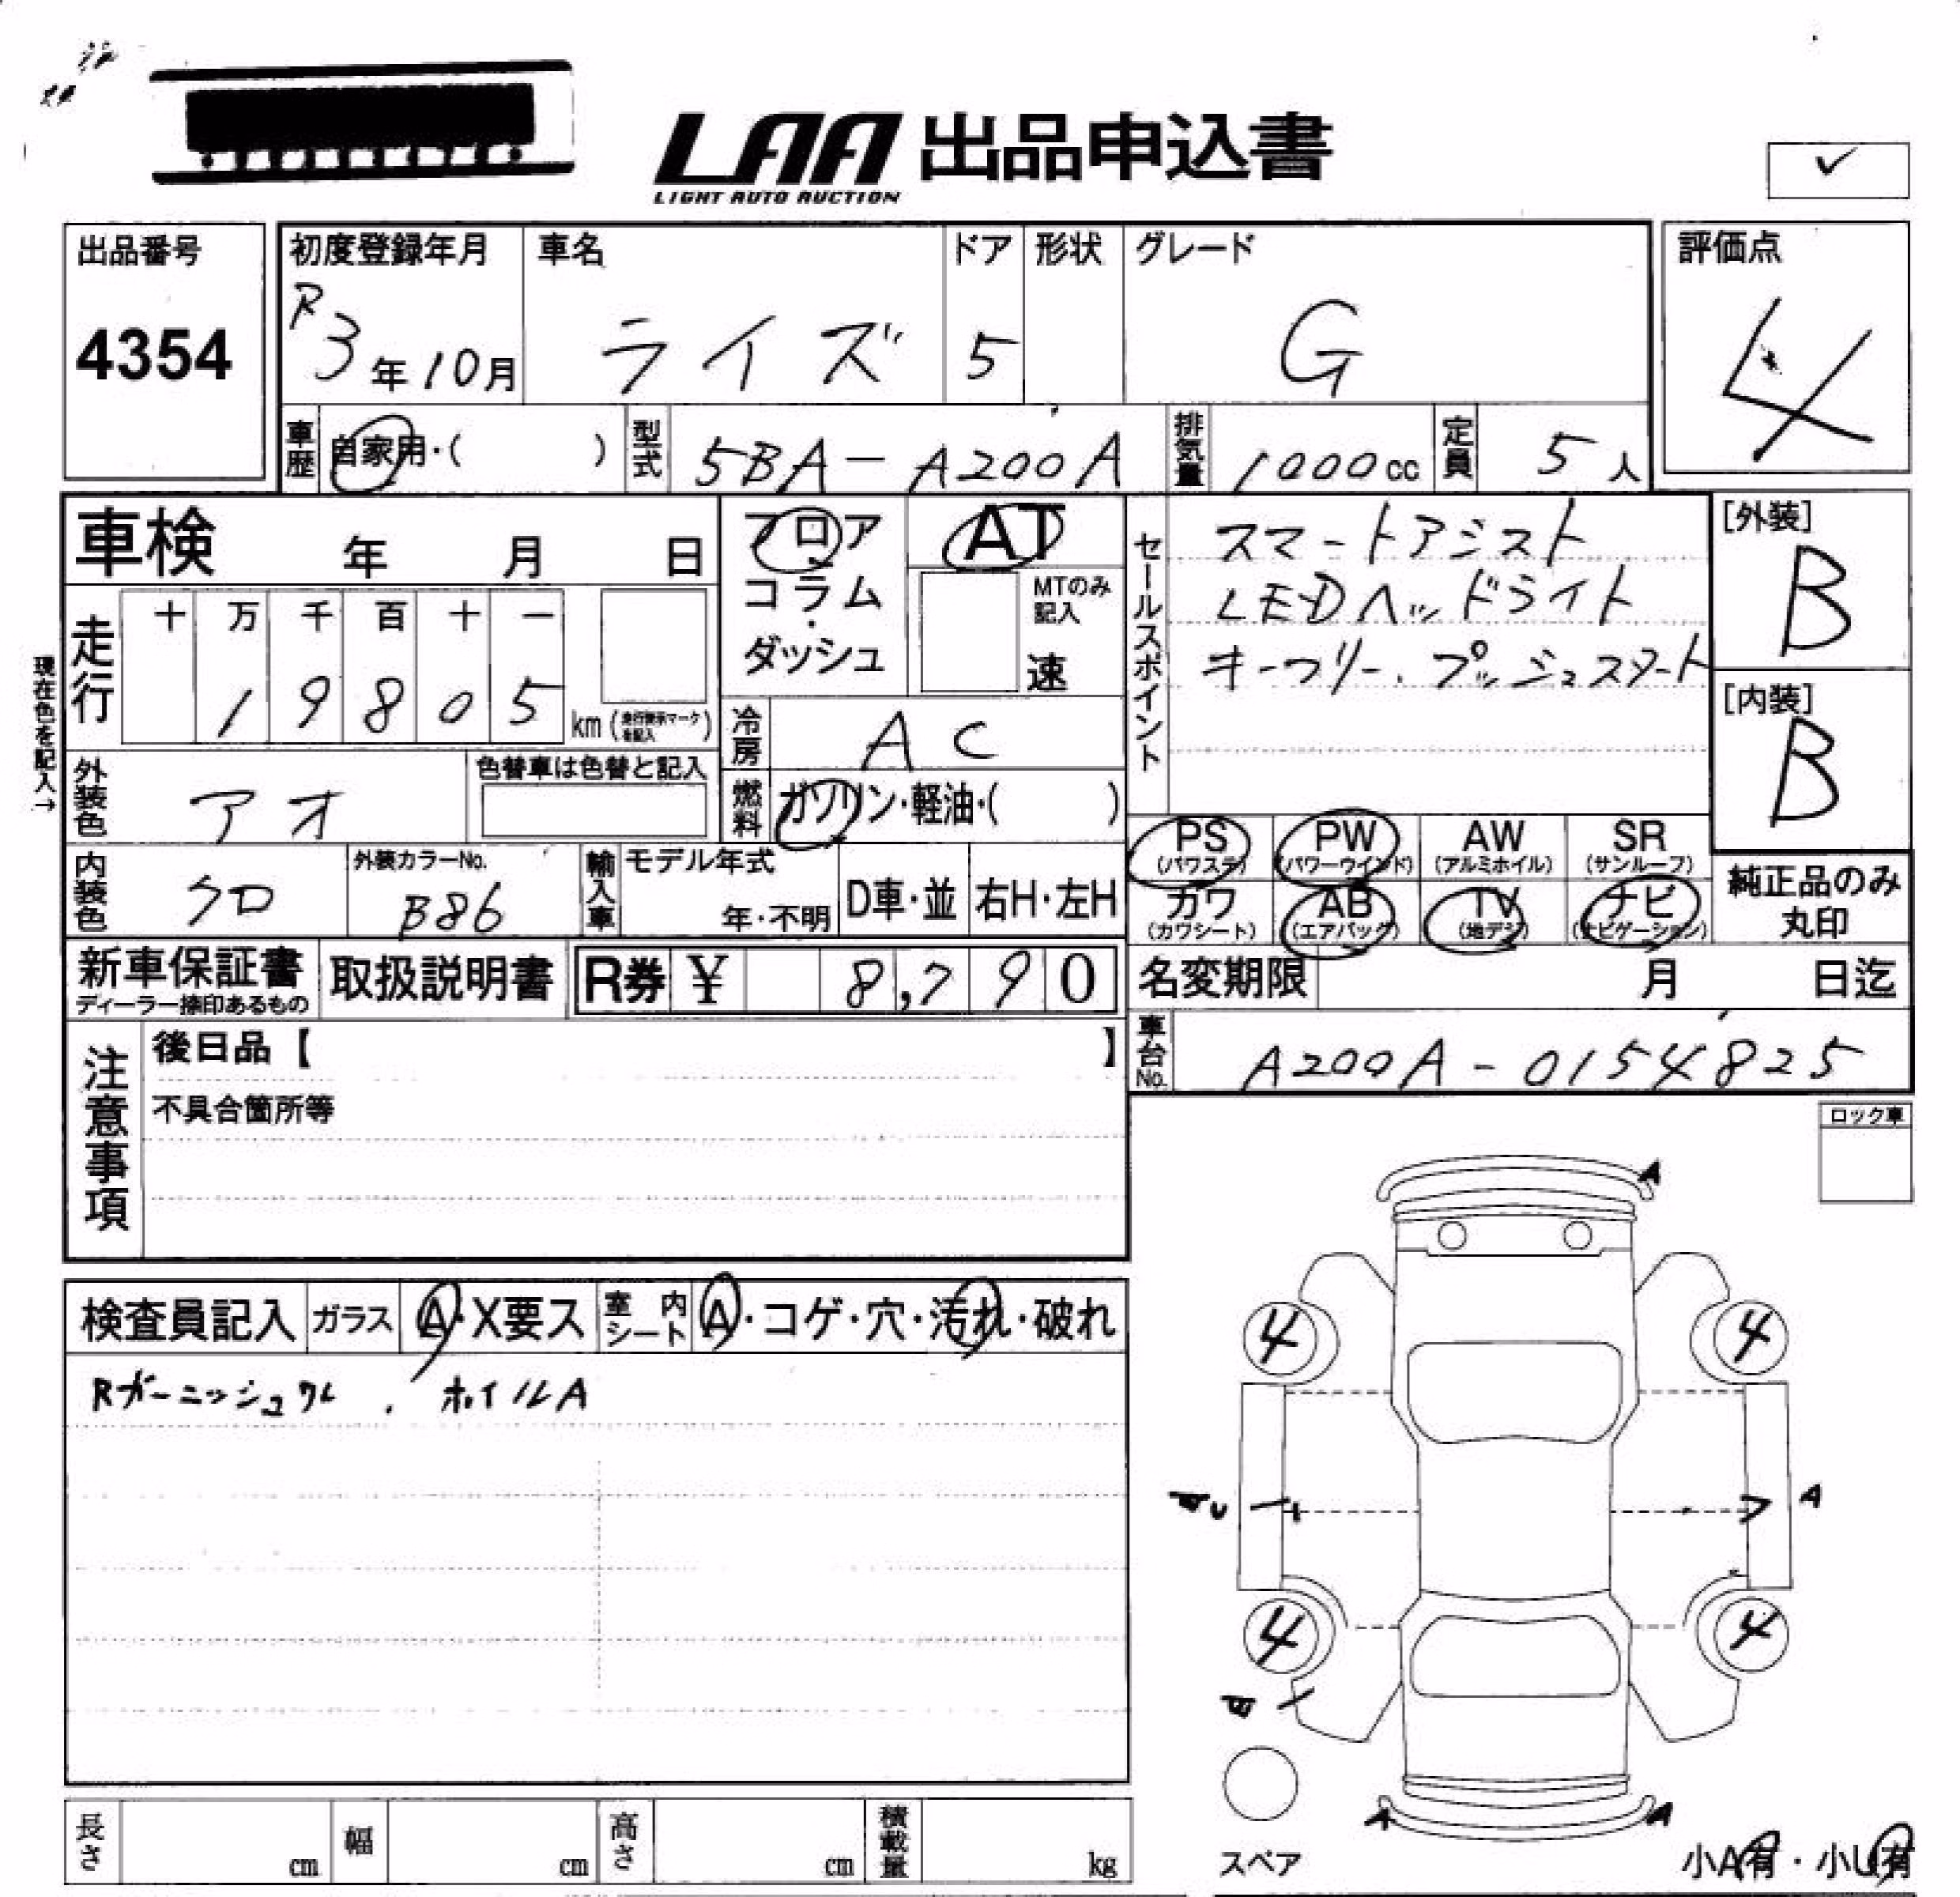 LAA 出品申込書
LIGHT AUTO AUCTION
出品番号
4354
初度登録年月
R3年10月
車名
ライズ
ドア
5
形状
グレード
G
評価点
4
車歴
自家用・( )
型式
5BA-A200A
排気量
1000cc
定員
5人
車検 年 月 日
フロア・コラム・ダッシュ
AT
MTのみ記入
速
セールスポイント
スマートアシスト
LEDヘッドライト
キーフリー、プッシュスタート
[外装]
B
[内装]
B
現在色を記入→
走行
十 万 千 百 十 一
1 9 8 0 5
km (走行表示マークを記入)
冷房
AC
外装色
アオ
色替車は色替と記入
燃料
ガソリン・軽油・( )
PS (パワステ)
PW (パワーウインド)
AW (アルミホイル)
SR (サンルーフ)
カワ (カワシート)
AB (エアバッグ)
TV (地デジ)
ナビ (ナビゲーション)
純正品のみ
丸印
内装色
クロ
外装カラーNo.
B86
輸入車
モデル年式
年・不明
D車・並
右H・左H
新車保証書
ディーラー捺印あるもの
取扱説明書
R券 ¥ 8,790
名変期限 月 日迄
車台No.
A200A-0154825
注意事項
後日品【 】
不具合箇所等
ロック車
検査員記入
ガラス
A・X要ス
室内シート
A・コゲ・穴・汚れ・破れ
Rガーニッシュワレ、ホイルA
A
4 4
A
4 4
A A
スペア
小A有・小U有
長さ cm
幅 cm
高さ cm
積載量 kg